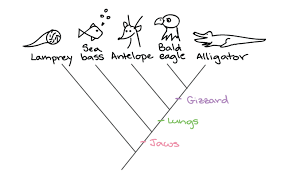 Lamprey
Sea bass
Antelope
Bald eagle
Alligator
Gizzard
Lungs
Jaws